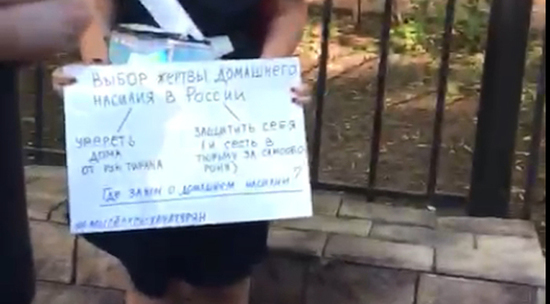 ВЫБОР ЖЕРТВЫ ДОМАШНЕГО
НАСИЛИЯ В РОССИИ
УМЕРЕТЬ
ДОМА
ОТ РУК ТИРАНА
ЗАЩИТИТЬ СЕБЯ
(И СЕСТЬ В
ТЮРЬМУ ЗА САМООБО-
РОНУ)
ГДЕ ЗАКОН О ДОМАШНЕМ НАСИЛИИ?